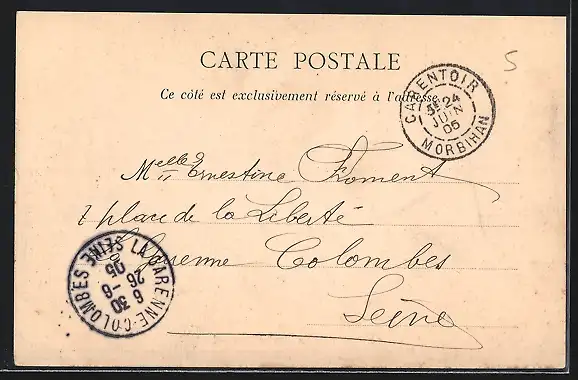 5
CARTE POSTALE
Ce côté est exclusivement réservé à l'adresse.
CARENTOIR
24
JUIN
05
MORBIHAN
Melle Ernestine Froment
7 place de la Liberté
La Garenne Colombes
Seine
LA GARENNE-COLOMBES SEINE
6 30
26-6
05